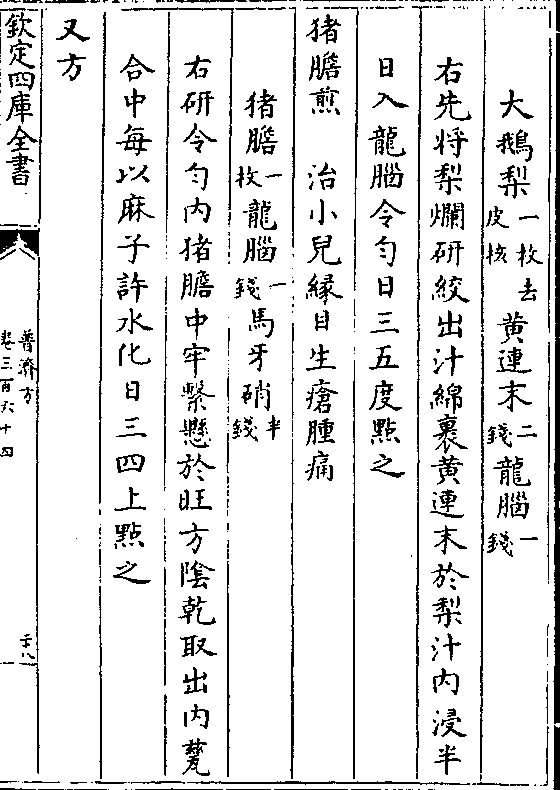 大鵝梨一枚去皮核黃連末二錢龍腦一錢
右先将梨爛研絞出汁綿裹黃連末於梨汁内浸半
日入龍腦令勻日三五度點之
猪膽煎　治小兒緣目生瘡腫痛
猪膽一枚龍腦一錢馬牙硝半錢
右研令勻内猪膽中牢繫懸於旺方陰乾取出内甆
合中每以麻子許水化日三四上點之
又方
欽定四庫全書
普濟方
卷三百六十四
三十八